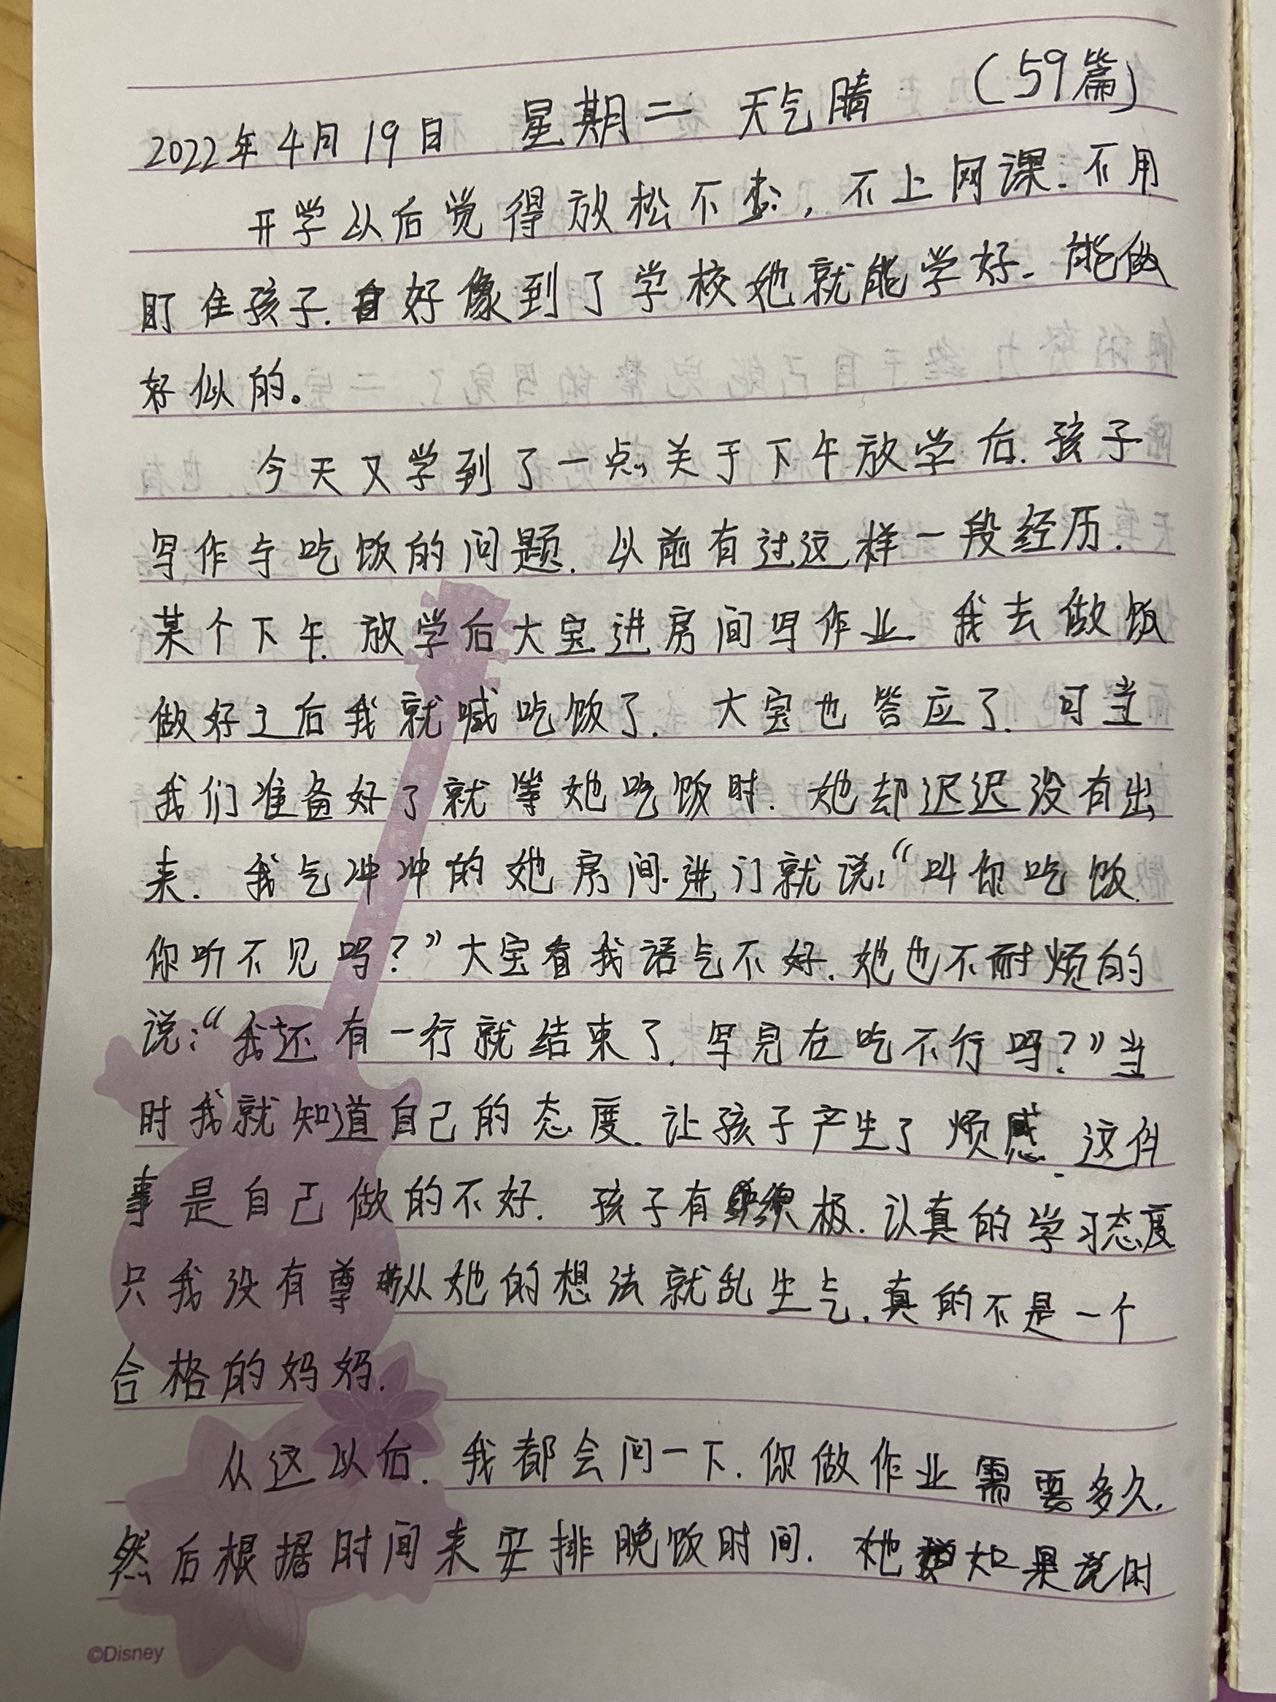 2022年4月19日 星期二 天气晴 (59篇)
开学以后觉得放松不少，不上网课.不用
盯住孩子.好像到了学校她就能学好.能做
好似的。
今天又学到了一点关于下午放学后.孩子
写作与吃饭的问题.以前有过这样一段经历.
某个下午.放学后大宝进房间写作业.我去做饭
做好之后我就喊吃饭了.大宝也答应了.可当
我们准备好了就等她吃饭时.她却迟迟没有出
来.我气冲冲的她房间.进门就说:“叫你吃饭.
你听不见吗?”大宝看我语气不好.她也不耐烦的
说:“我还有一行就结束了.写完在吃不行吗?”当
时我就知道自己的态度.让孩子产生了烦感.这件
事是自己做的不好.孩子有积极.认真的学习态度
只我没有尊从她的想法就乱生气.真的不是一个
合格的妈妈.
从这以后.我都会问一下.你做作业需要多久.
然后根据时间来安排晚饭时间.她如果说时
©Disney